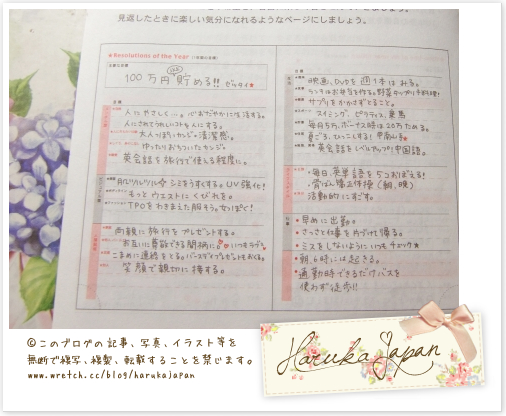 見返したときに楽しい気分になれるようなページにしましょう。
Resolutions of the Year
100万円貯める!! ゼッタイ
人にやさしく…。心おだやかに生活する。
大人っぽいカンジ。清潔感。
ゆったりおちついたカンジ。
英会話を旅行で使える程度に。
肌ツルツル シミをうすくする。UV強化!
もっとウエストにくびれを。
TPOをわきまえた服そう。女っぽく!
両親に旅行をプレゼントする。
お互いに尊敬できる関係に。いつもラブ
こまめに連絡をとる。バースディプレゼントもおくる。
笑顔で親切に接する。
映画、DVDを週1本はみる。
サプリをかかさずとること。
スイミング、ピラティス、乗馬
毎月5万、ボーナス時は20万ためる。
英会話をレベルアップ!中国語。
毎日、英単語を5コおぼえる!
骨ばん矯正体操(朝、晩)
活動的にすごす。
早めに出勤。
さっさと仕事を片づけて帰る。
ミスをしないようにいつもチェック
朝、6時には起きる。
通勤時できるだけバスを
使わず徒歩!!
©このブログの記事、写真、イラスト等を
無断で複写、複製、転載することを禁じます。
www.wretch.cc/blog/harukajapan
Haruka Japan